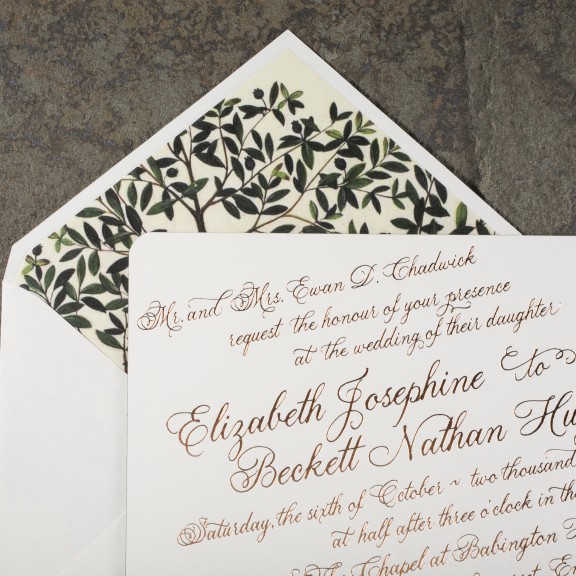 Mr. and Mrs. Ewan D. Chadwick
request the honour of your presence
at the wedding of their daughter
Elizabeth Josephine to
Beckett Nathan
Saturday, the sixth of October ~ two thousand
at half after three o'clock in the
Chapel at Babington